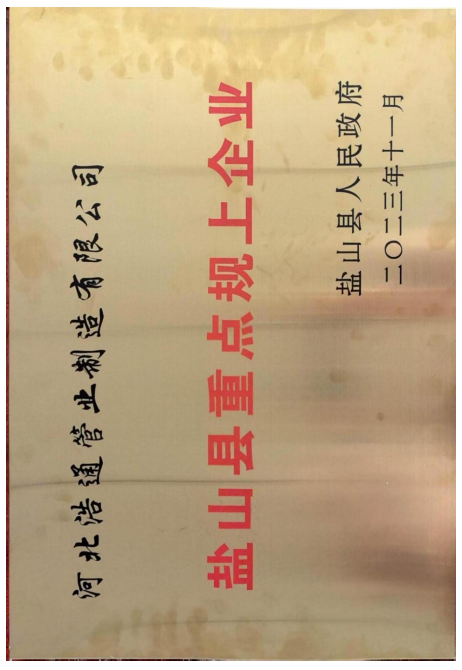 河北浩通管业制造有限公司
盐山县重点规上企业
盐山县人民政府
二〇二三年十一月